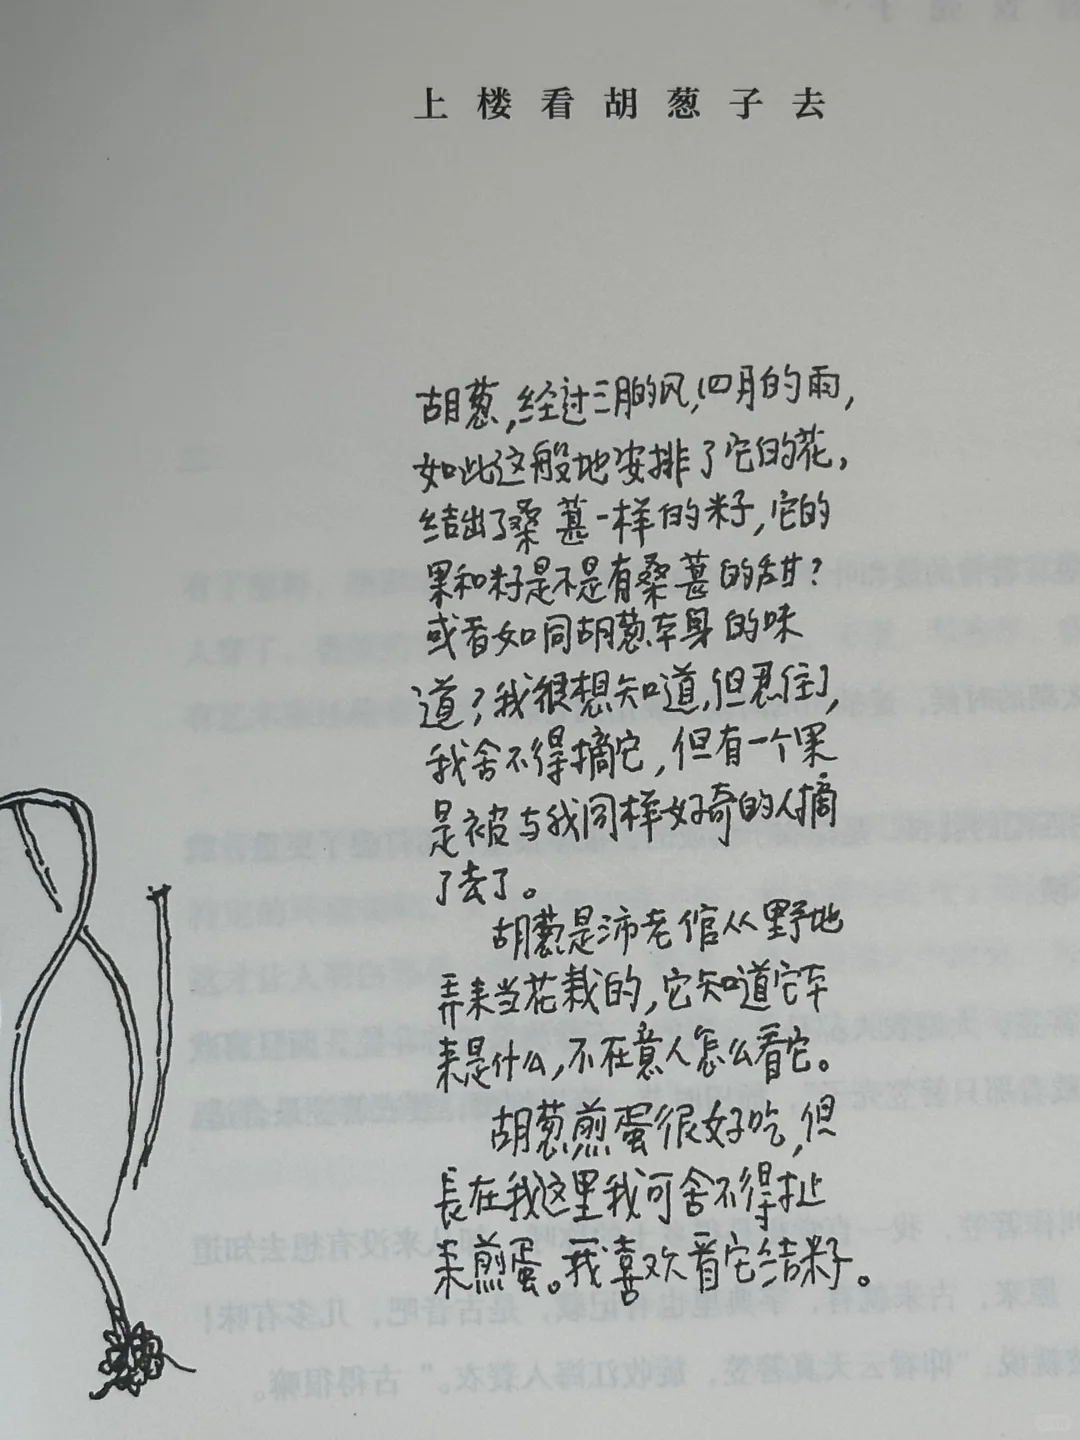 上楼看胡葱子去
胡葱,经过三月的风,四月的雨,
如此这般地安排了它的花,
结出了桑葚一样的籽,它的
果和籽是不是有桑葚的甜?
或者如同胡葱本身的味
道?我很想知道,但忍住了,
我舍不得摘它,但有一个果
是被与我同样好奇的人摘
了去了。
胡葱是沛老倌从野地
弄来当花栽的,它知道它本
来是什么,不在意人怎么看它。
胡葱煎蛋很好吃,但
長在我这里我可舍不得扯
来煎蛋。我喜欢看它结籽。